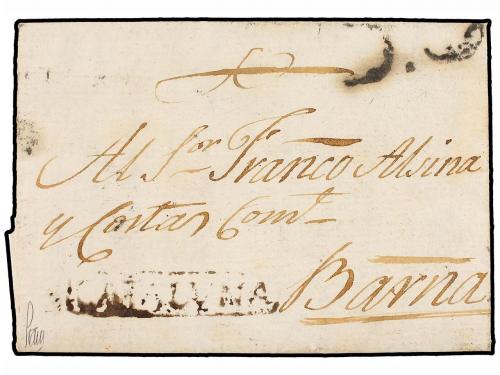 Al Sor. Franco Alsina
y Costas Comte.
Barna